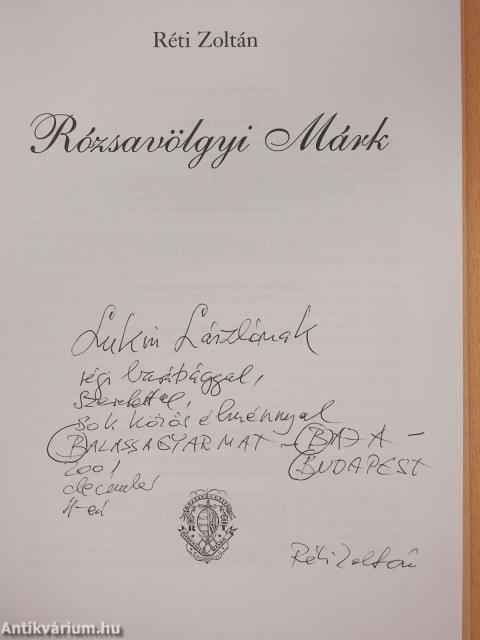 Réti Zoltán
Rózsavölgyi Márk
Lukin Lászlónak
régi barátsággal,
szeretettel,
sok közös élménnyel
BALASSAGYARMAT - BAJA -
BUDAPEST
2001
december
4-én
R T
Réti Zoltán
Antikvárium.hu